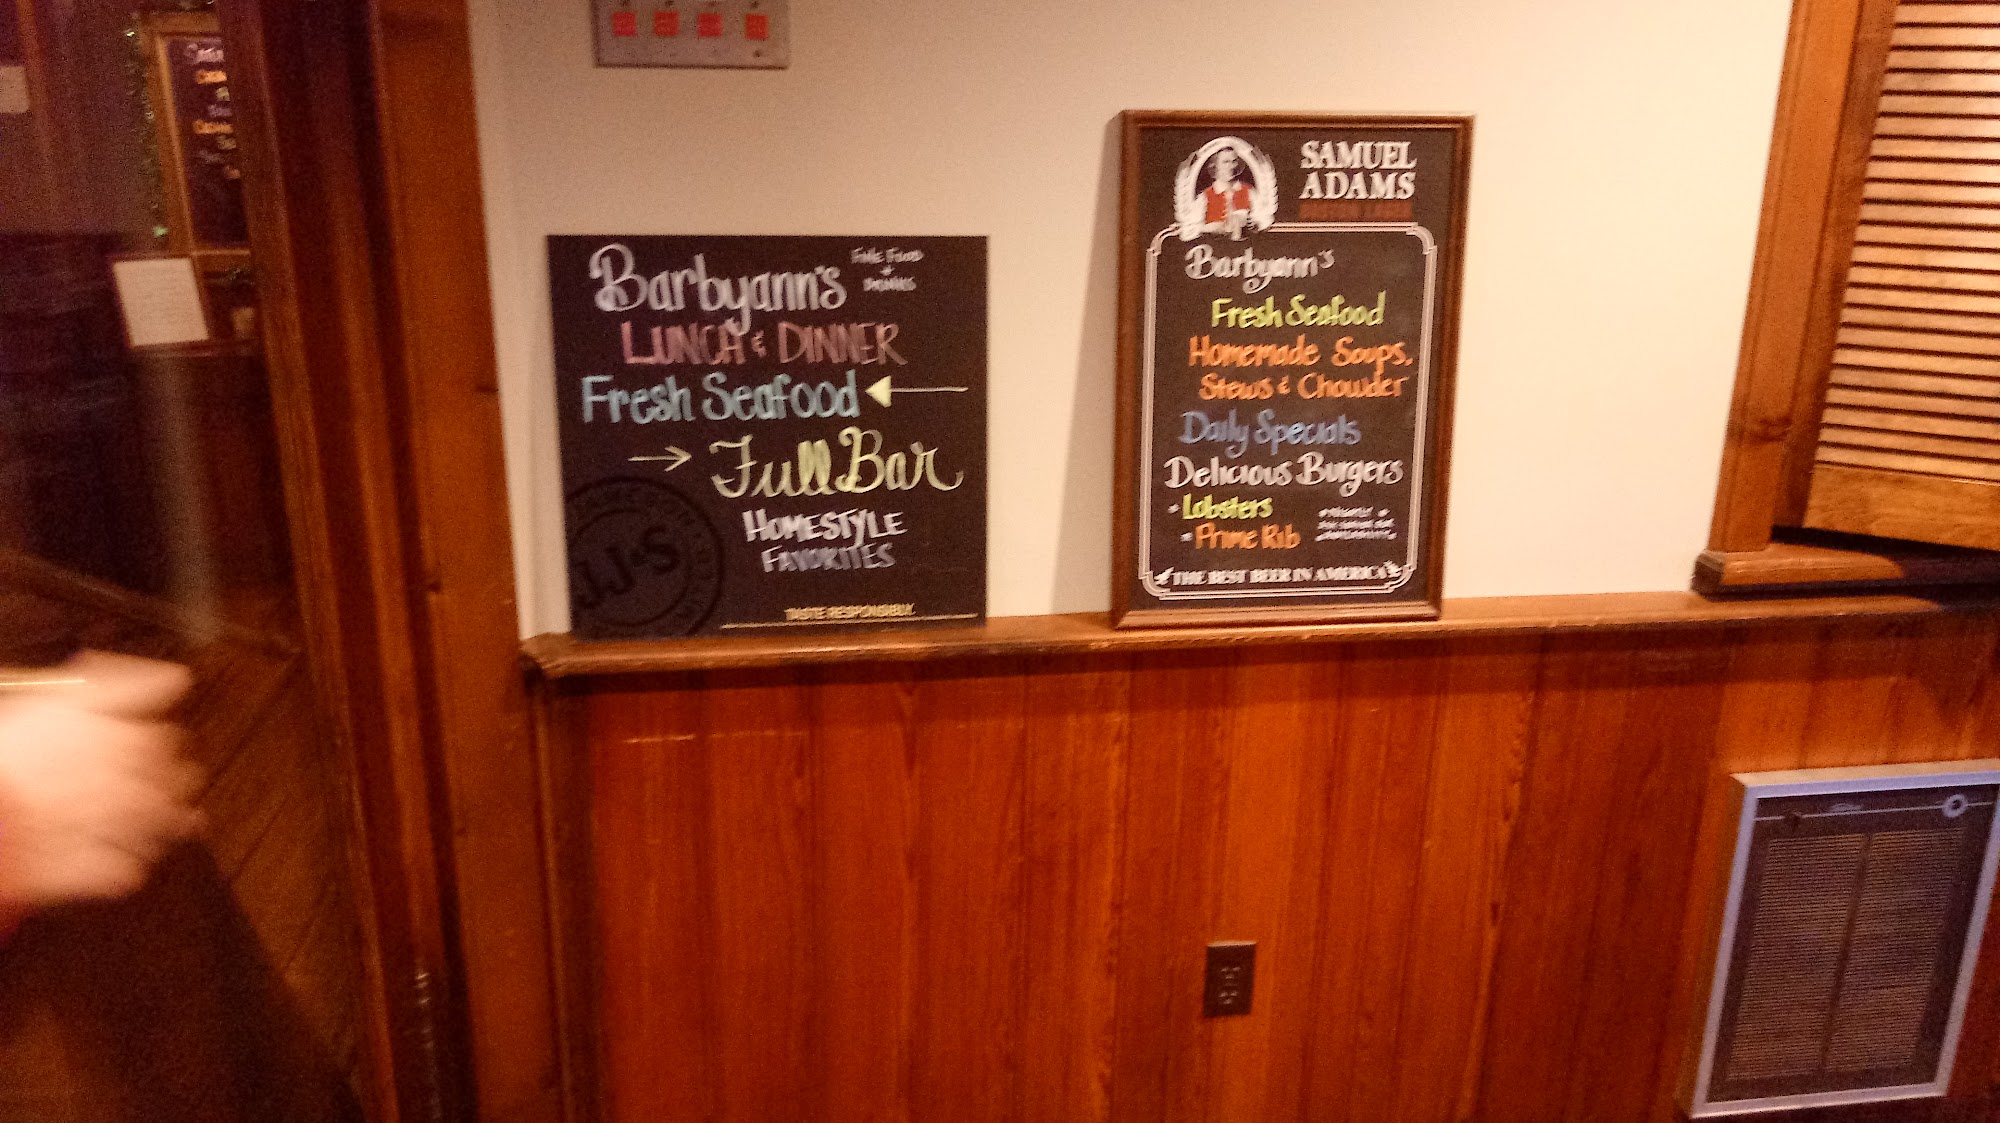 Barbyann's
FINE FOOD
+
DRINKS
LUNCH & DINNER
Fresh Seafood
Full Bar
HOMESTYLE
FAVORITES
JJ&S
TASTE RESPONSIBLY.
SAMUEL
ADAMS
Barbyann's
Fresh Seafood
Homemade Soups,
Stews & Chowder
Daily Specials
Delicious Burgers
• Lobsters
• Prime Rib
THE BEST BEER IN AMERICA